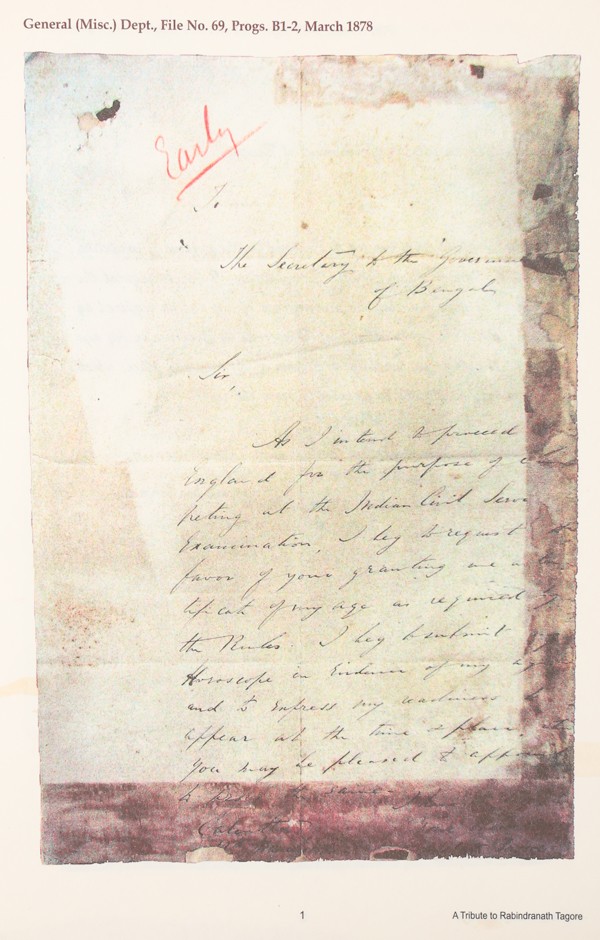 General (Misc.) Dept., File No. 69, Progs. B1-2, March 1878
Early
To
The Secretary to the Governme
of Bengal
Sir,
As I intend to proceed
England for the purpose of
peting at the Indian Civil Serv
Examination, I beg to request the
favor of your granting me a
tificate of my age as required
the Rules. I beg to submit
Horoscope in Evidence of my ag
and to express my readiness
appear at the time & place
you may be pleased to appoin
to the same.
Calcutta
1
A Tribute to Rabindranath Tagore